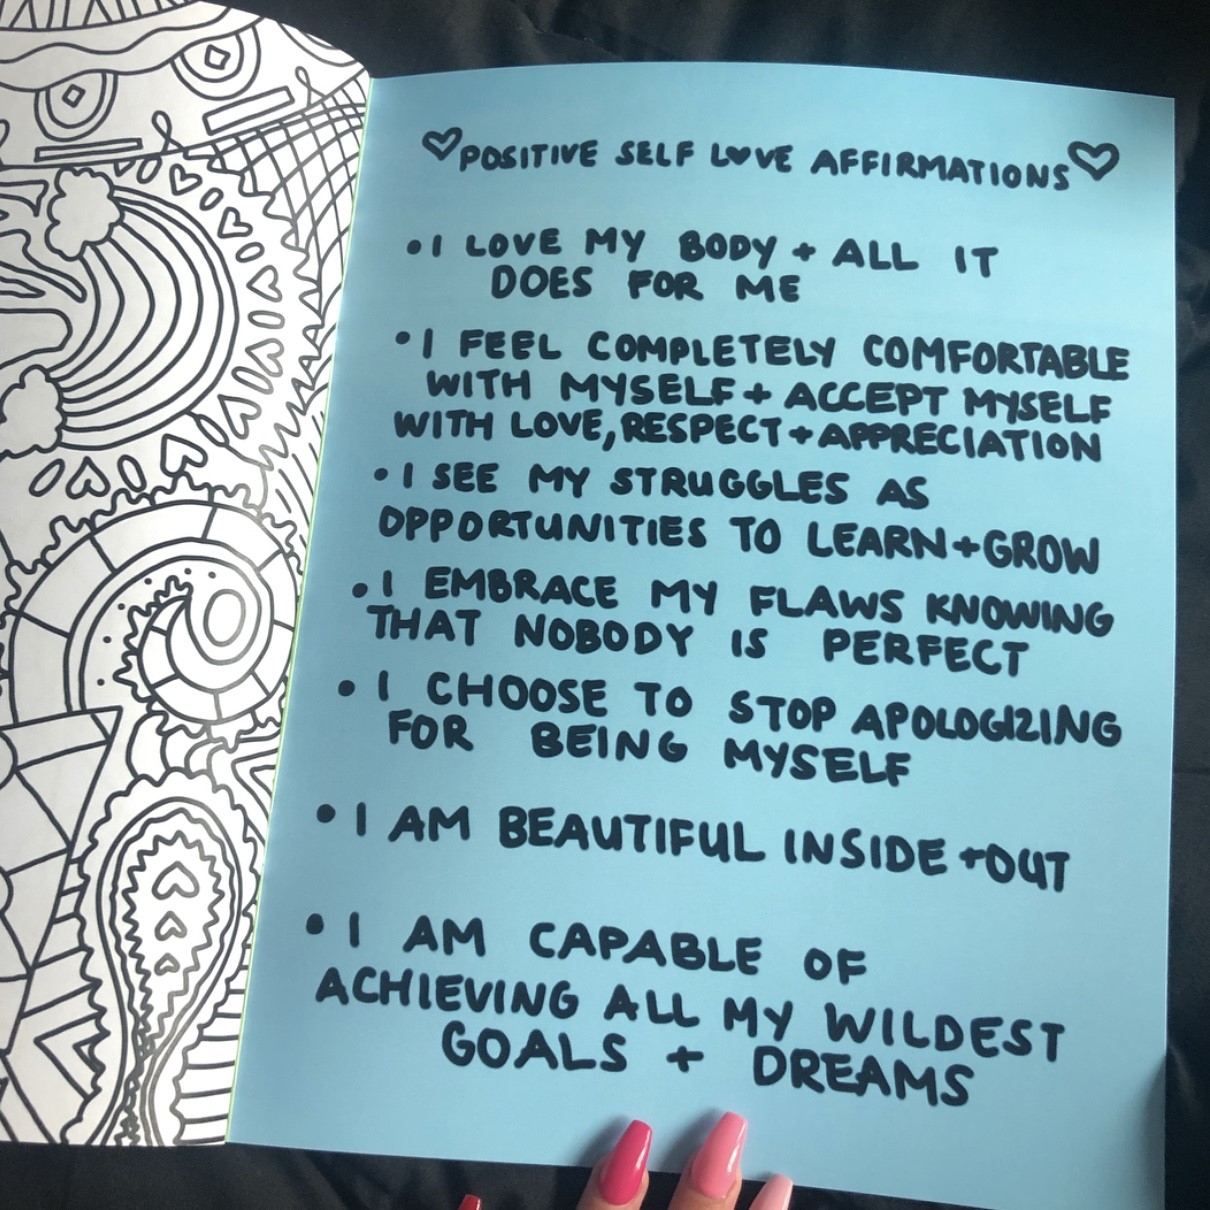 ♡POSITIVE SELF LOVE AFFIRMATIONS♡
• I LOVE MY BODY + ALL IT
DOES FOR ME
• I FEEL COMPLETELY COMFORTABLE
WITH MYSELF + ACCEPT MYSELF
WITH LOVE, RESPECT + APPRECIATION
• I SEE MY STRUGGLES AS
OPPORTUNITIES TO LEARN + GROW
• I EMBRACE MY FLAWS KNOWING
THAT NOBODY IS PERFECT
• I CHOOSE TO STOP APOLOGIZING
FOR BEING MYSELF
• I AM BEAUTIFUL INSIDE + OUT
• I AM CAPABLE OF
ACHIEVING ALL MY WILDEST
GOALS + DREAMS